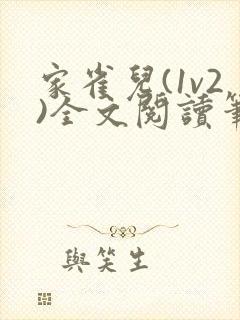 家雀兒(1v2
)全文閱讀筆
與笑生